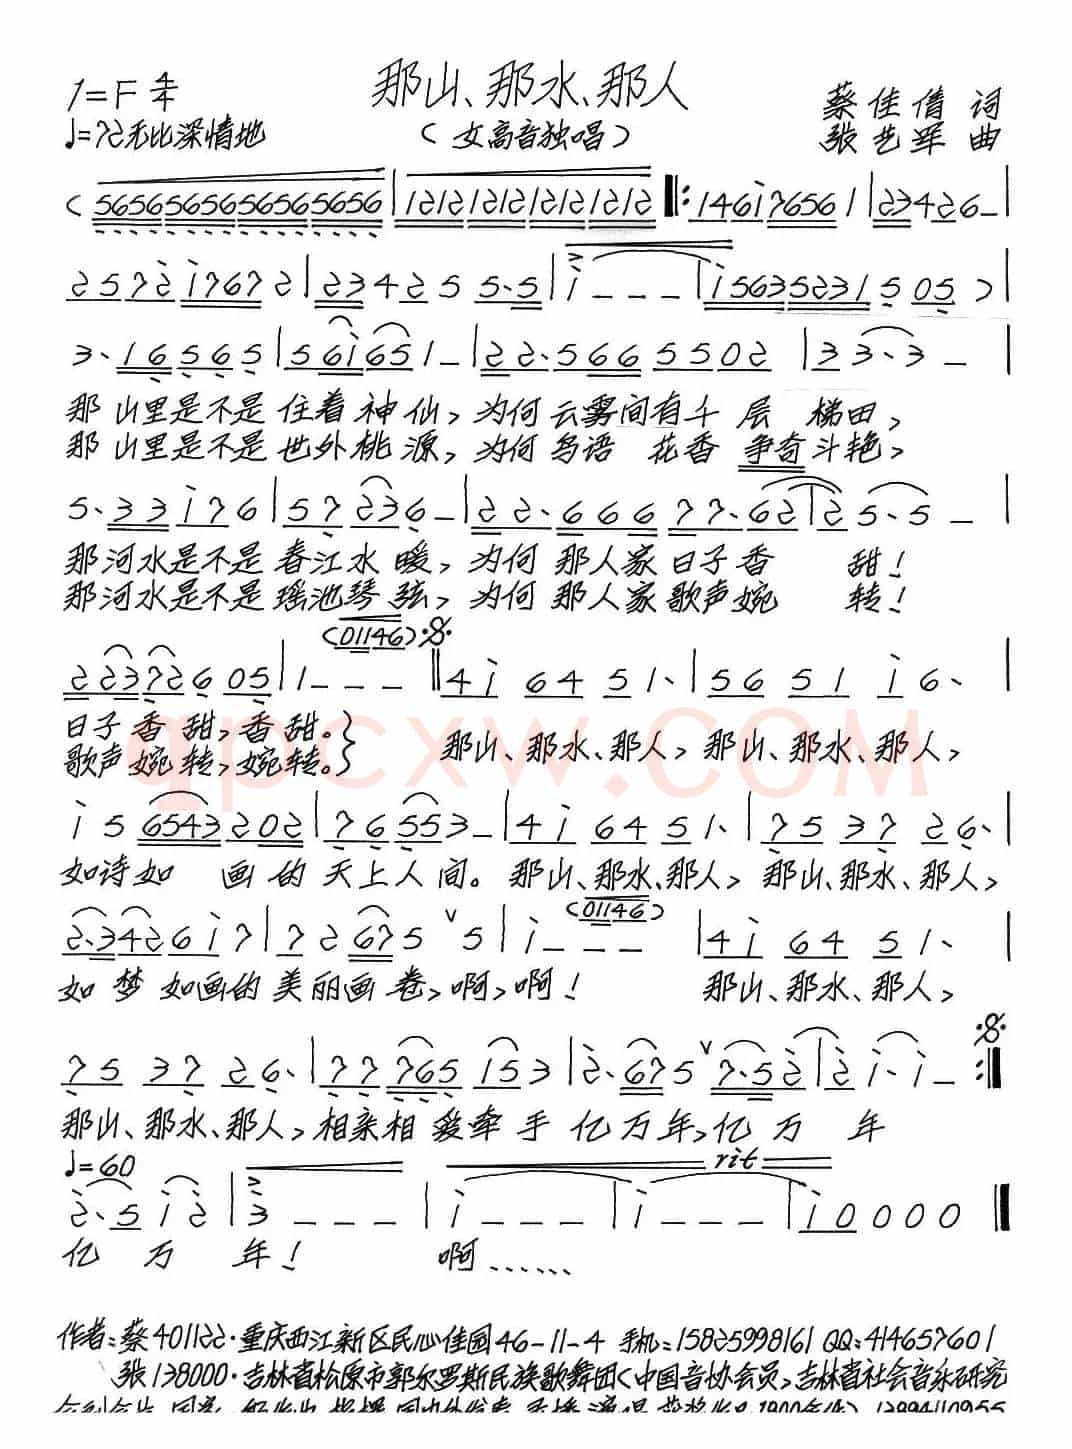 那山、那水、那人
1=F 4/4
蔡佳倩 词
♩=72 无比深情地
(女高音独唱)
张艺军 曲
(5656565656565656|1212121212121212‖:146176561|23426–|
2572176 72|23425 5·5|1–––|156352315 05)|
3·16565|561651–|22·5665502|33·3–|
那山里是不是住着神仙,为何云雾间有千层梯田,
那山里是不是世外桃源,为何鸟语花香争奇斗艳,
5·33176|57236–|22·66677·62|25·5–|
那河水是不是春江水暖,为何那人家日子香甜!
那河水是不是瑶池琴弦,为何那人家歌声婉转!
(01146)
2237260 5|1–––‖41 64 51·|56 51 16·|
日子香甜,香甜。}
歌声婉转,婉转。}
那山、那水、那人,那山、那水、那人,
qpcxw.COM
15 6543202|76553–|41 64 51·|75 37 26·|
如诗如画的天上人间。那山、那水、那人,那山、那水、那人,
(01146)
2·342617|72675 ∨5|1–––|41 64 51·|
如梦如画的美丽画卷,啊,啊!那山、那水、那人,
75 37 26·|77765153|2·675∨7·52|21·1–:‖
那山、那水、那人,相亲相爱牵手亿万年,亿万年
♩=60
rit
2·512|3–––|1–––|1–––|10000‖
亿万年!啊......
作者:蔡401122·重庆西江新区民心佳园46-11-4 手机:15825998161 QQ:414657601
张138000·吉林省松原市郭尔罗斯民族歌舞团(中国音协会员,吉林省社会音乐研究